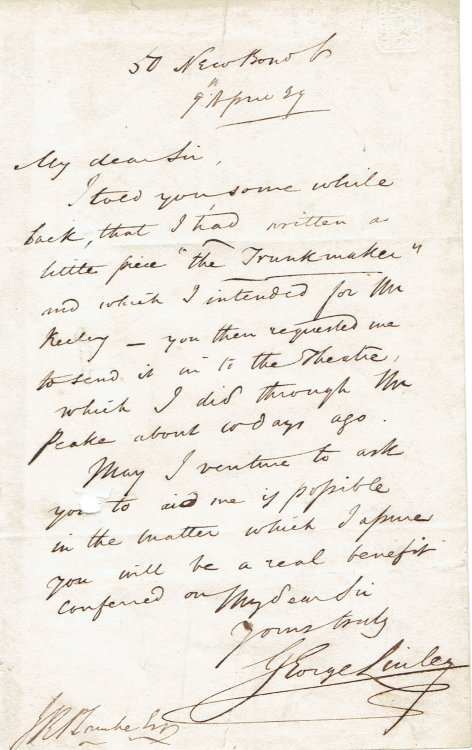 50 New Bond St
9th April 39
My dear Sir,
I told you, some while
back, that I had written a
little piece "the Trunkmaker"
and which I intended for Mr
Keeley — you then requested me
to send it in to the Theatre,
which I did through Mr
Peake about 10 days ago.
May I venture to ask
you to aid me if possible
in the matter which I assure
you will be a real benefit
conferred on My dear Sir
Yours truly
George Linley
Esq